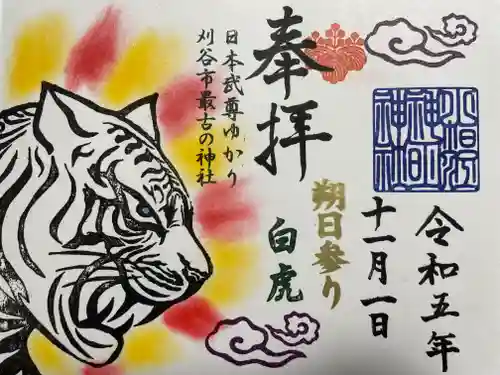 令和五年
十一月一日
朔日参り
奉拝
白虎
日本武尊ゆかり
刈谷市最古の神社